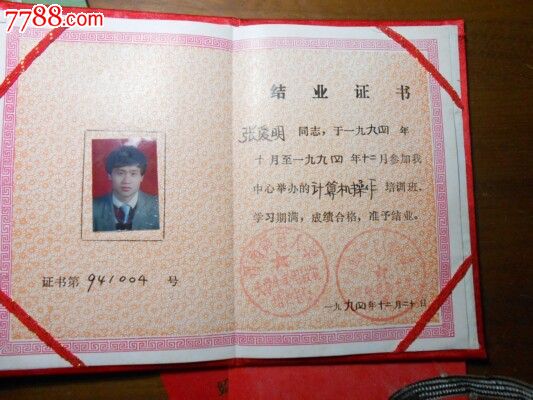 7788.com
证书第 941004 号
结业证书
张庆明 同志,于一九九四年
十月至一九九四年十二月参加我
中心举办的计算机操作培训班,
学习期满,成绩合格,准予结业。
一九九四年十二月二十日